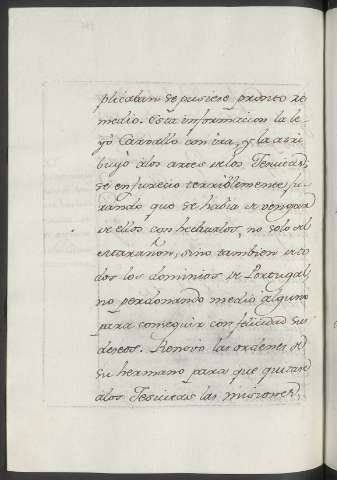 plicaban se pusiese pronto re
medio. Esta informacion la le
yó Carvallo con ira, y la atri
buyó a los artes de los Jesuitas;
se enfurecio terriblemente, ju
rando que se habia de vengar
de ellos con hecharlos, no solo del
Marañon, sino tambien de to
dos los dominios de Portugal,
no perdonando medio alguno
para conseguir con felicidad sus
deseos. Renovó las ordenes de
su hermano para que quitase
a los Jesuitas las misiones,